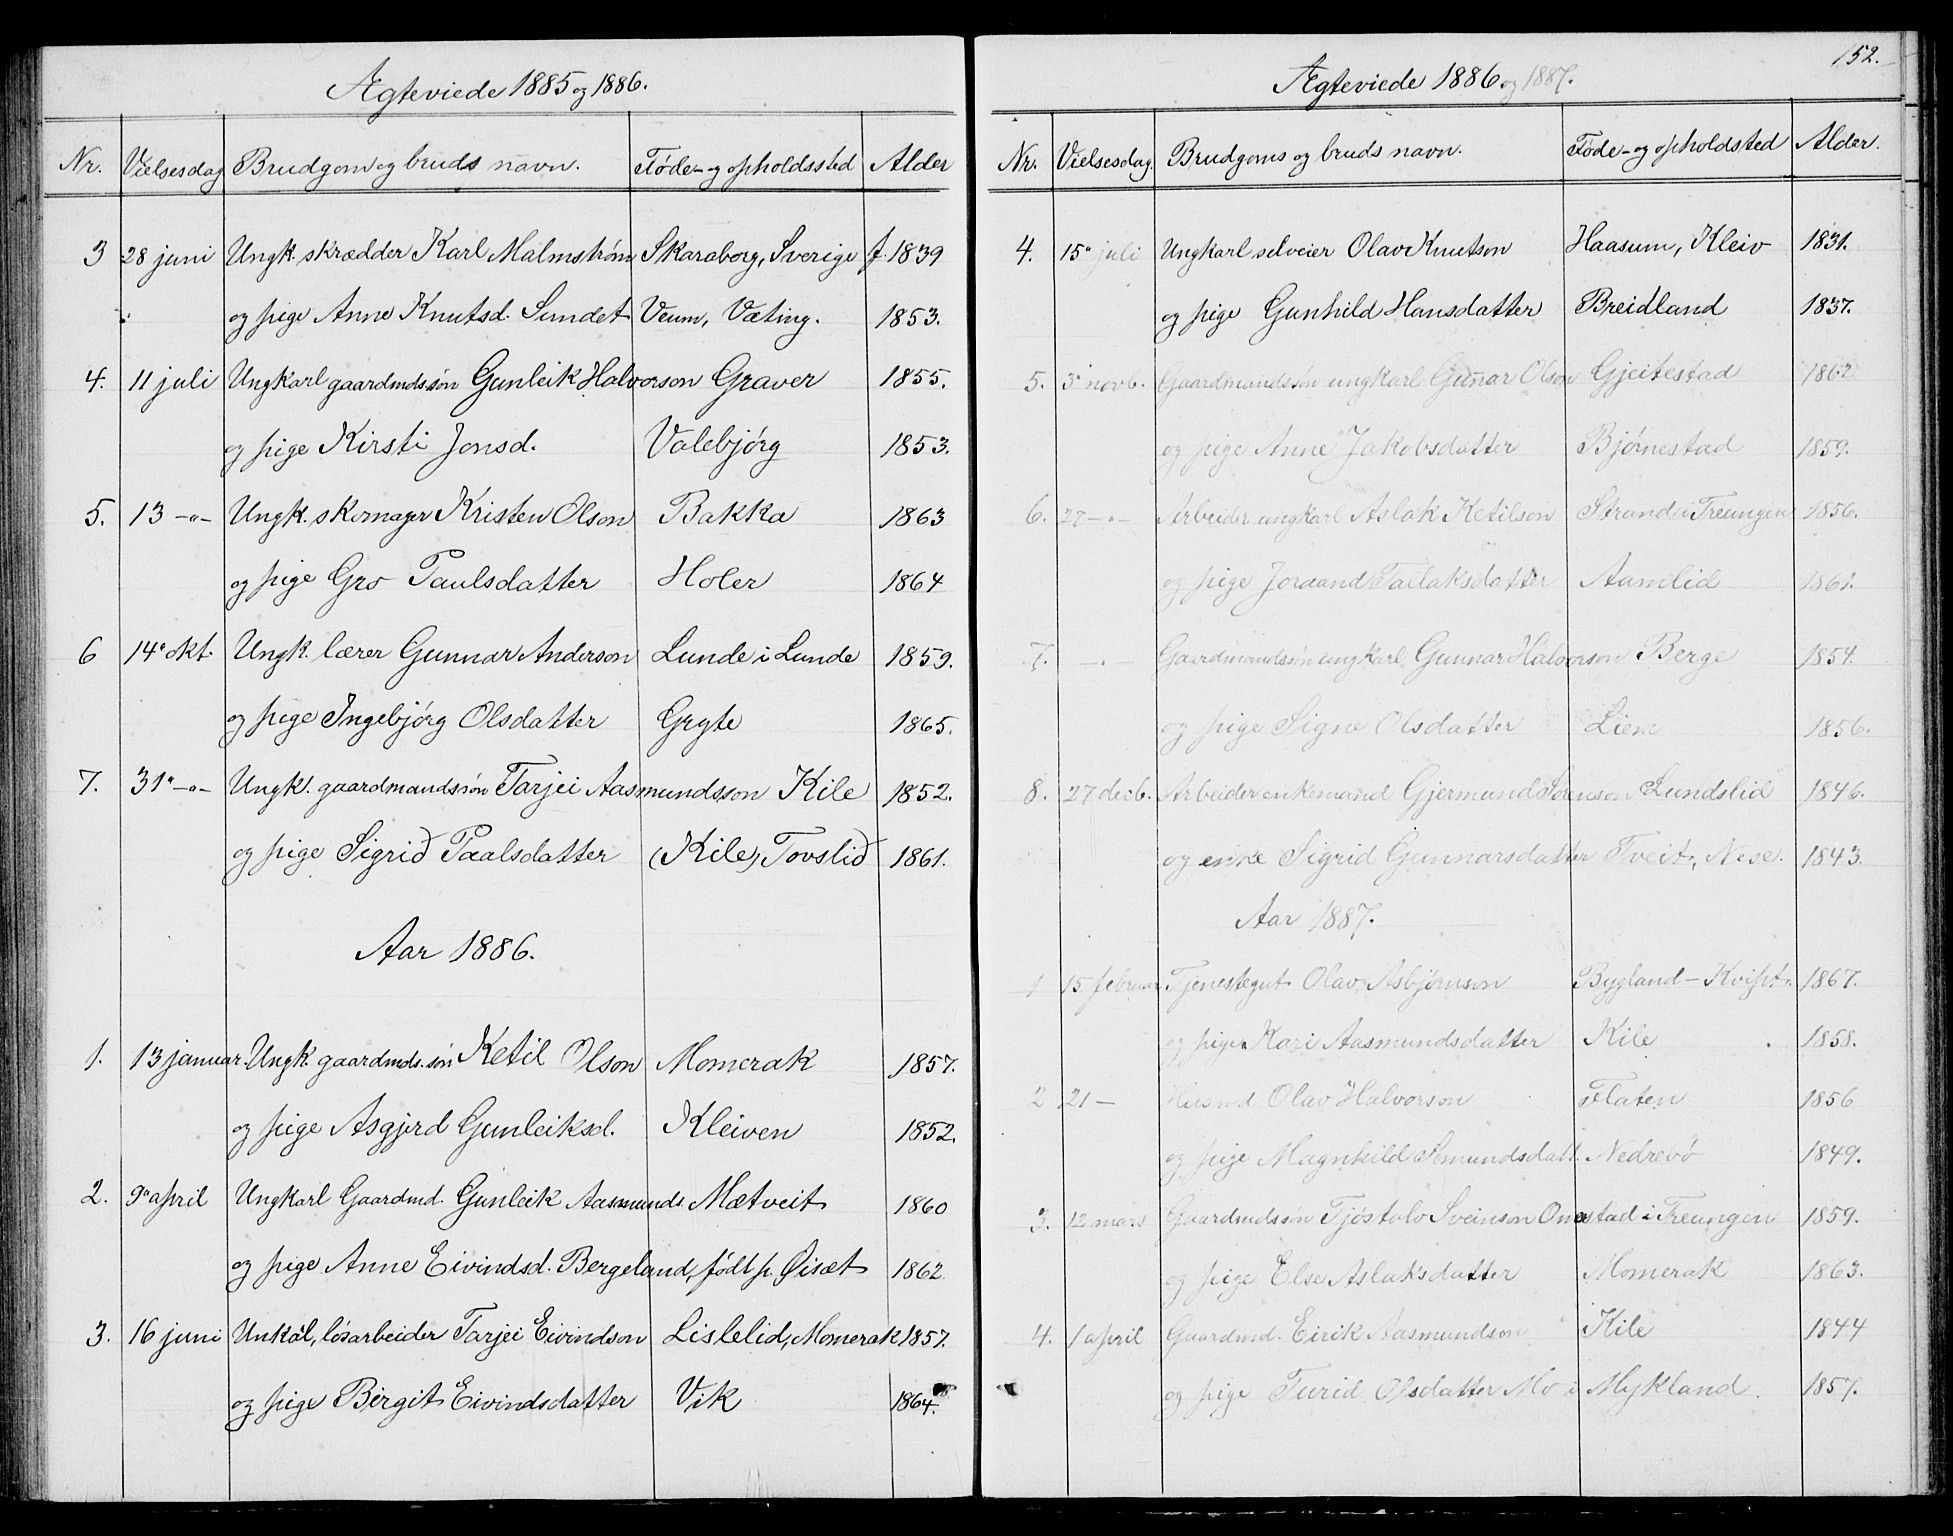 Ægteviede 1885 og 1886.
Nr. Vielsesdag Brudgom og bruds navn. Føde- og opholdssted Alder
3 28 juni Ungk. skrædder Karl Malmstrøm Skaraborg, Sverige f. 1839
og pige Anne Knutsd. Sundet Veum, Væting. 1853.
4. 11 juli Ungkarl gaardmdssøn Gunleik Halvorson Graver 1855.
og pige Kirsti Jonsd. Valebjørg 1853.
5. 13 -"- Ungk. skomager Kristen Olson Bakka 1863
og pige Gro Paulsdatter Holer 1864
6 14de okt. Ungk. lærer Gunnar Anderson Lunde i Lunde 1859.
og pige Ingebjörg Olsdatter Gryte 1865.
7. 31te -"- Ungk. gaardmandssøn Tarjei Aasmundsson Kile 1852.
og pige Sigrid Paalsdatter (Kile) Tovslid 1861.
Aar 1886.
1. 13 januar. Ungk. gaardmds.søn Ketil Olson Momerak 1857.
og pige Asgjerd Gunleiksd. Kleiven 1852.
2. 9de april Ungkarl Gaardmd. Gunleik Aasmunds. Mætveit 1860
og pige Anne Eivindsd. Bergeland, født p. Øisæt 1862.
3. 16 juni Unkal, løsarbeider Tarjei Eivindson Lislelid, Momerak 1857.
og pige Birgit Eivindsdatter Vik 1864.
152.
Ægteviede 1886 og 1887.
Nr. Vielsesdag. Brudgoms og bruds navn. Føde- og opholdsted Alder.
4. 15de juli Ungkarl selveier Olav Knutson Haasum, Kleiv 1831.
og pige Gunhild Hansdatter Breidland 1837.
5. 3die novb. Gaardmandssøn ungkarl Gunar Olson Gjeitestad 1862
og pige Anne Jakobsdatter Bjørnestad 1859.
6. 27 -"- Arbeider ungkarl Aslak Ketilson Strand i Treungen 1856.
og pige Joraand Tallaksdatter Aamlid 1861.
7. -"- Gaardmandssøn ungkarl Gunnar Halvorson Berge 1854.
og pige Signe Olsdatter Lien 1856.
8. 27 decb. Arbeider enkemand Gjermund Sørenson Lundslid 1846.
og enke Sigrid Gunnarsdatter Tveit, Nese. 1843.
Aar 1887.
1 15 februar Tjenestegut Olav Asbjørnson Bygland - Kvipt. 1867.
og pige Kari Aasmundsdatter Kile 1858.
2 21 - Husmd. Olav Halvorson Flaten 1856
og pige Magnhild Semundsdatt. Nedrebø 1849.
3. 12 mars Gaardmdssøn Tjøstolv Sveinson Onestad i Treungen 1859.
og pige Else Aslaksdatter Momerak 1863.
4. 1 april Gaardmd. Eirik Aasmundson Kile 1844
og pige Turid Olsdatter Mo i Mykland. 1857.